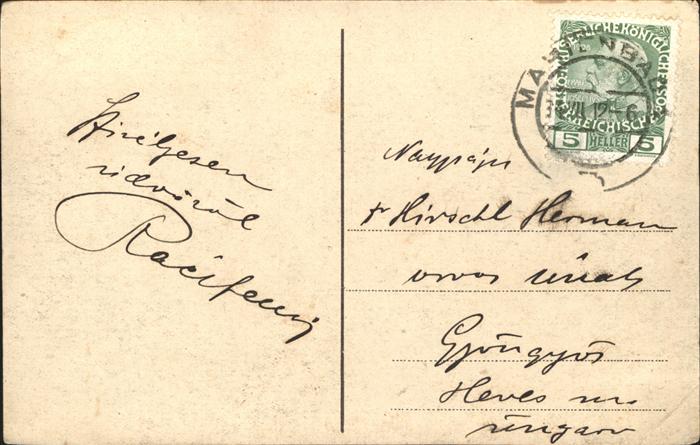 Szívélyesen
üdvözöl
MARIENBAD
KAISERLICHE KÖNIGLICHE ÖSTERREICHISCHE
5 HELLER 5
Dr Hirschl Herman
orvos úrnak
Gyöngyös
Heves m.
Ungarn